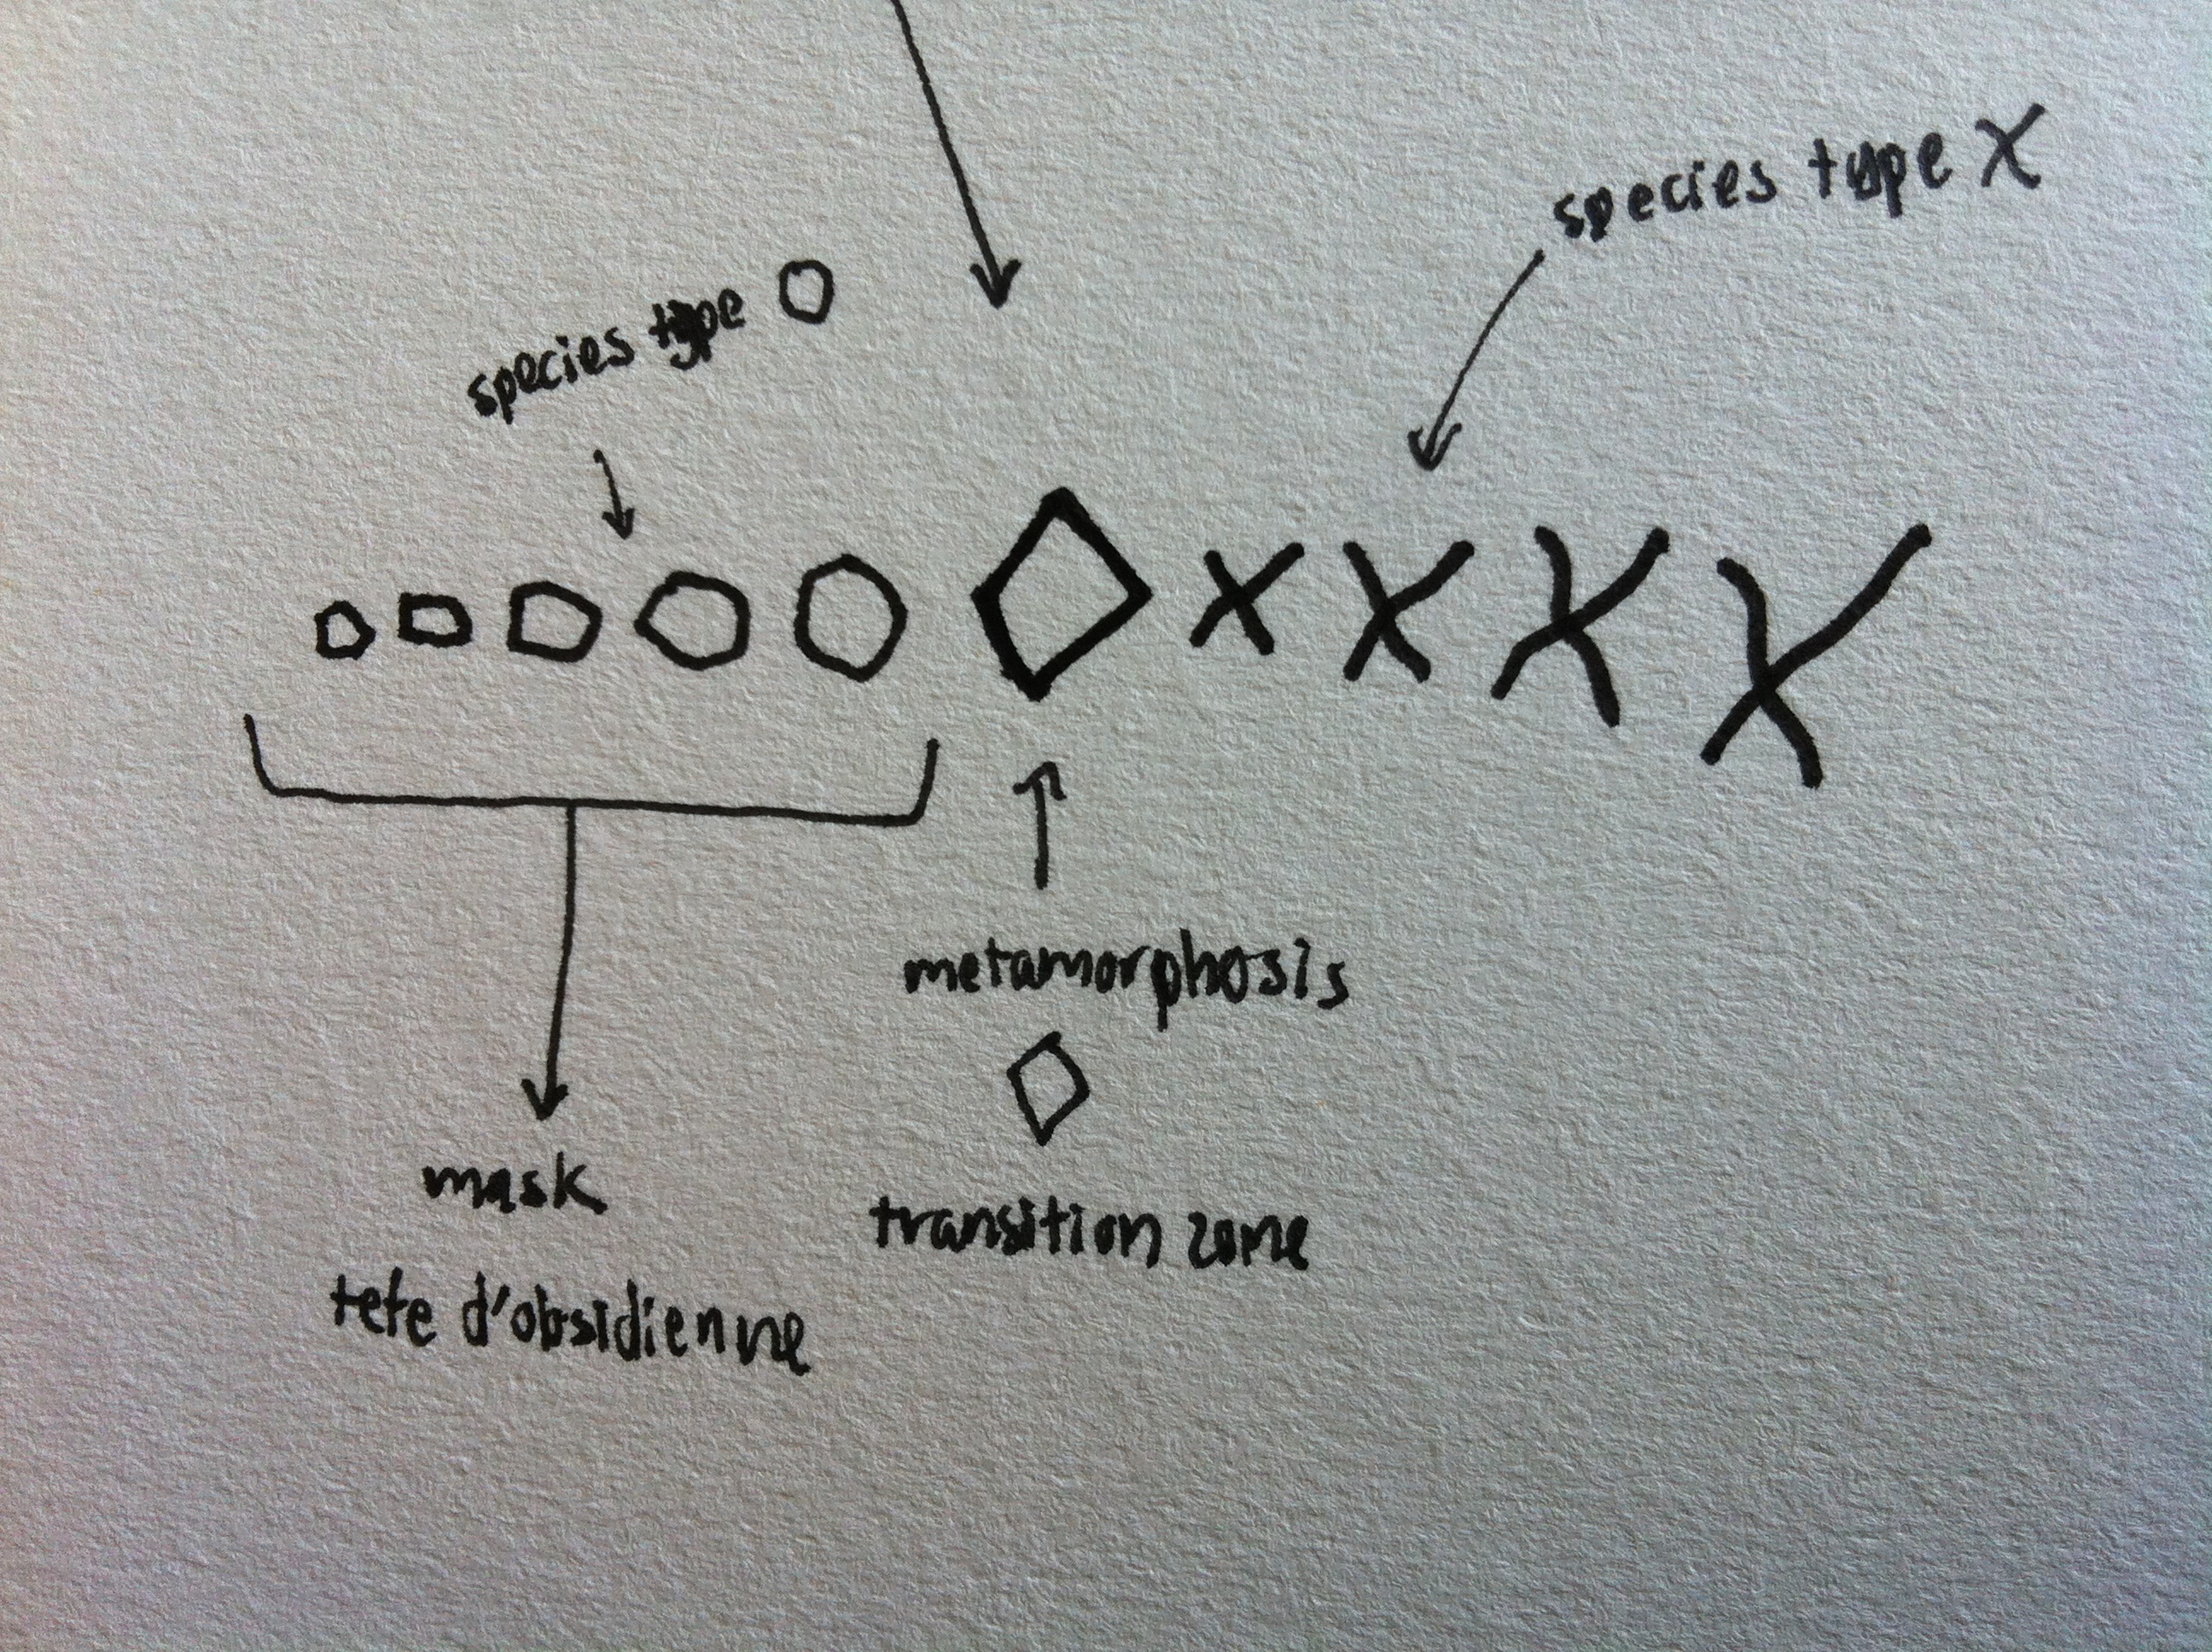 species type X
species type O
metamorphosis
transition zone
mask
tete d'obsidienne